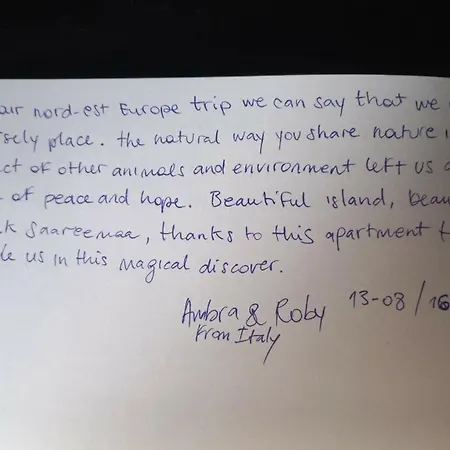 our nord-est Europe trip we can say that we
place. the natural way you share nature
of other animals and environment left us
of peace and hope. Beautiful island,
Saareemaa, thanks to this apartment
us in this magical discover.
Ambra & Roby 13-08/16
From Italy